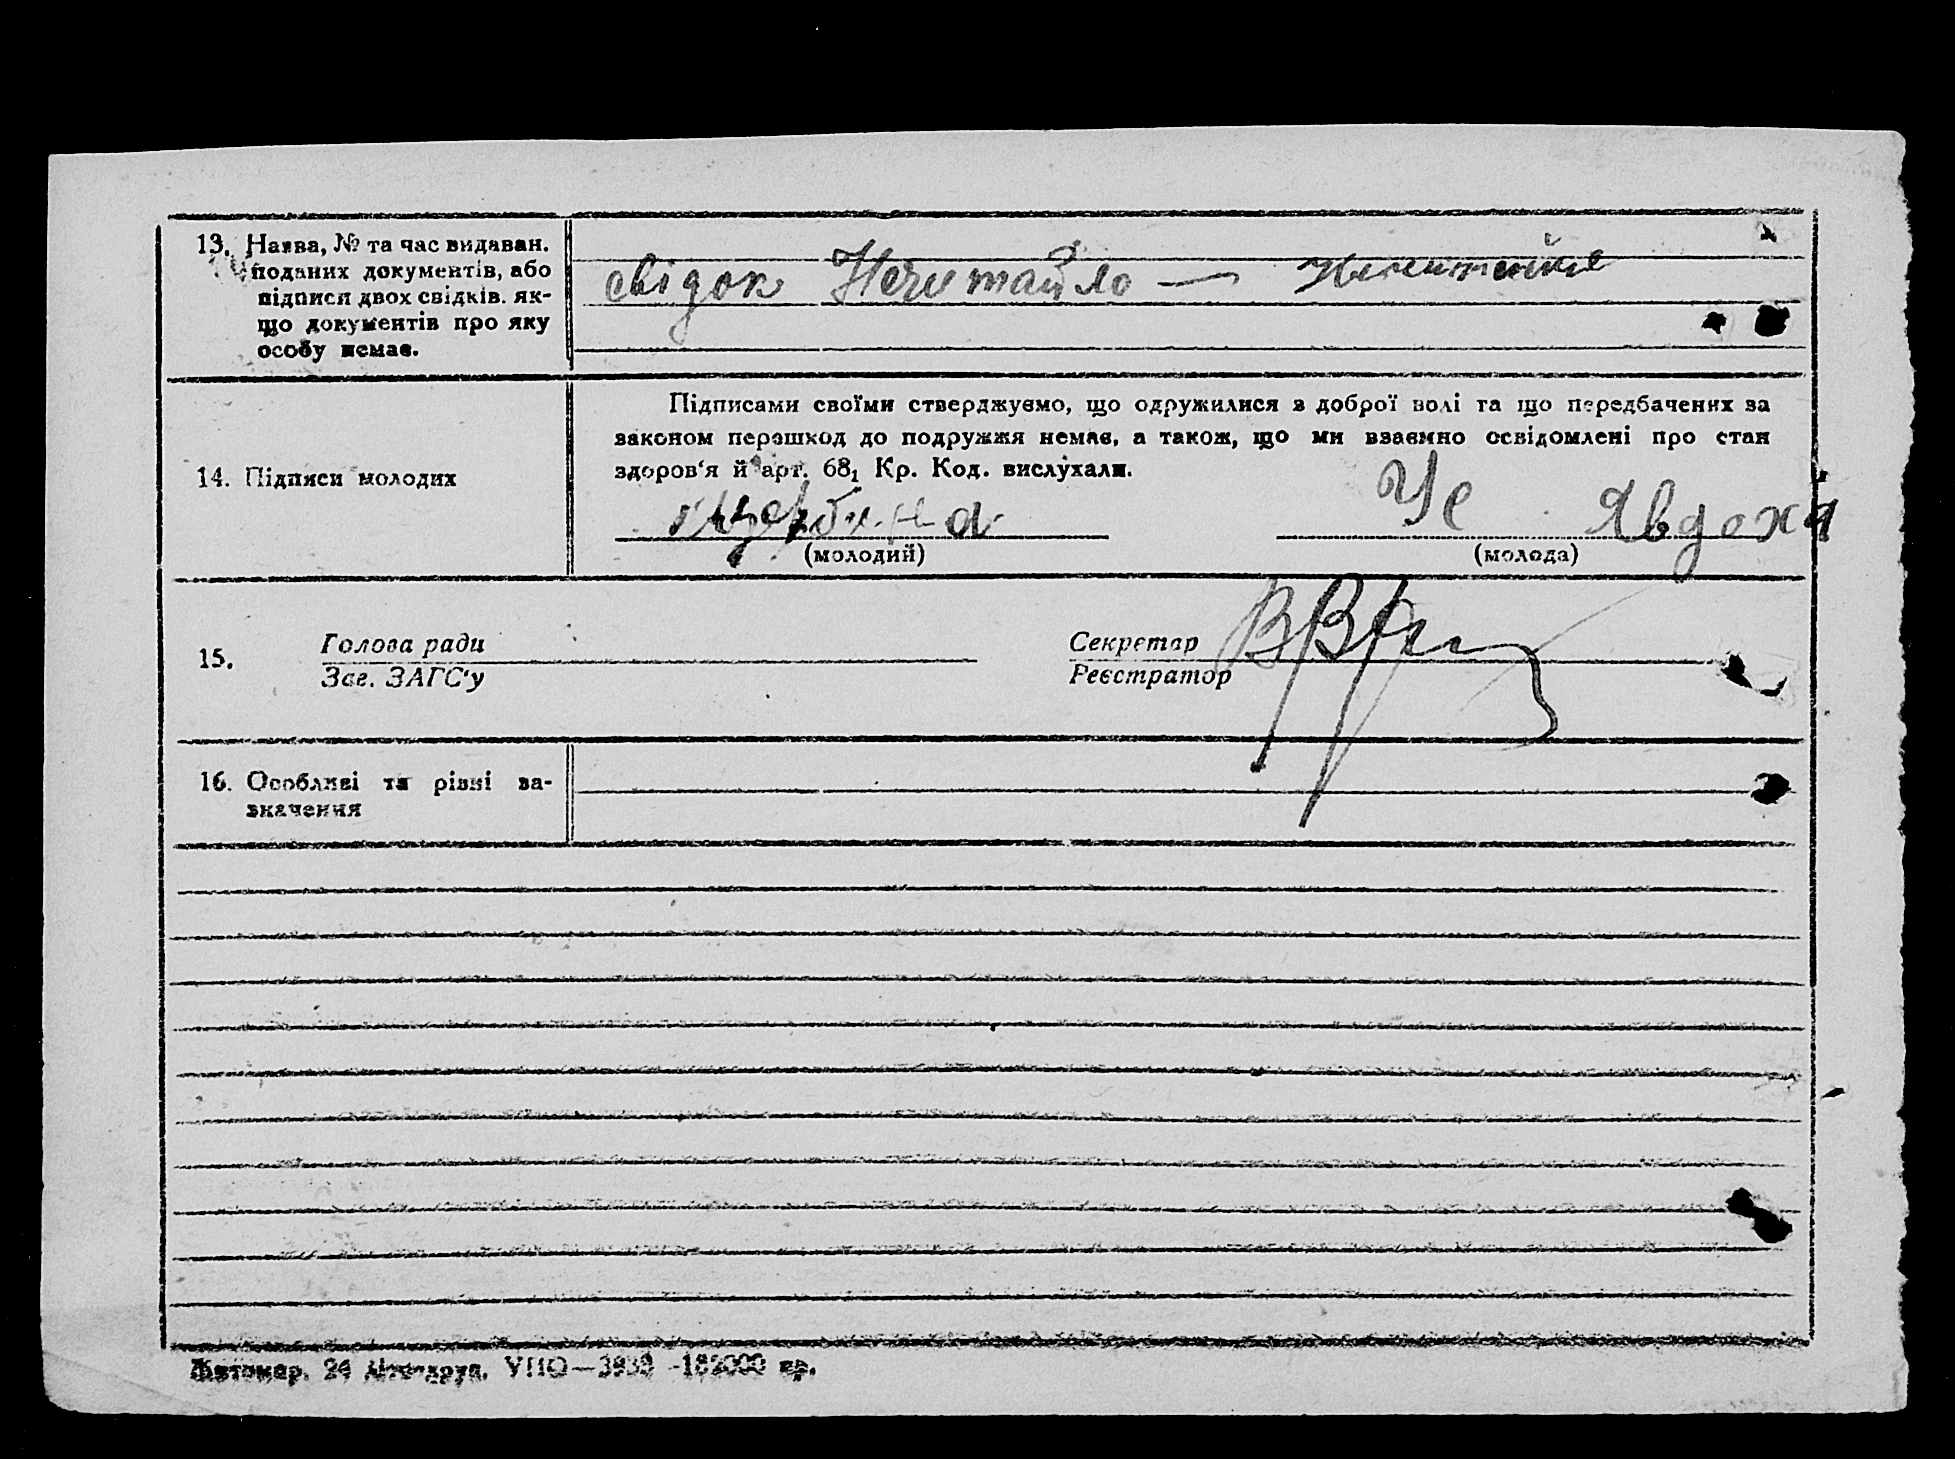 13. Назва, № та час видаван.
поданих документів, або
підписи двох свідків. як-
що документів про яку
особу немає.
свідок Нечитайло —
14. Підписи молодих
Підписами своїми стверджуємо, що одружилися з доброї волі та що передбачених за
законом перешкод до подружжя немає, а також, що ми взаємно освідомлені про стан
здоров'я й арт. 68₁ Кр. Код. вислухали.
щербина
(молодий)
Че Явдоха
(молода)
15. Голова ради
Зав. ЗАГС'у
Секретар
Реєстратор
16. Особливі та різні за-
значення
Житомир. 24 УПО—